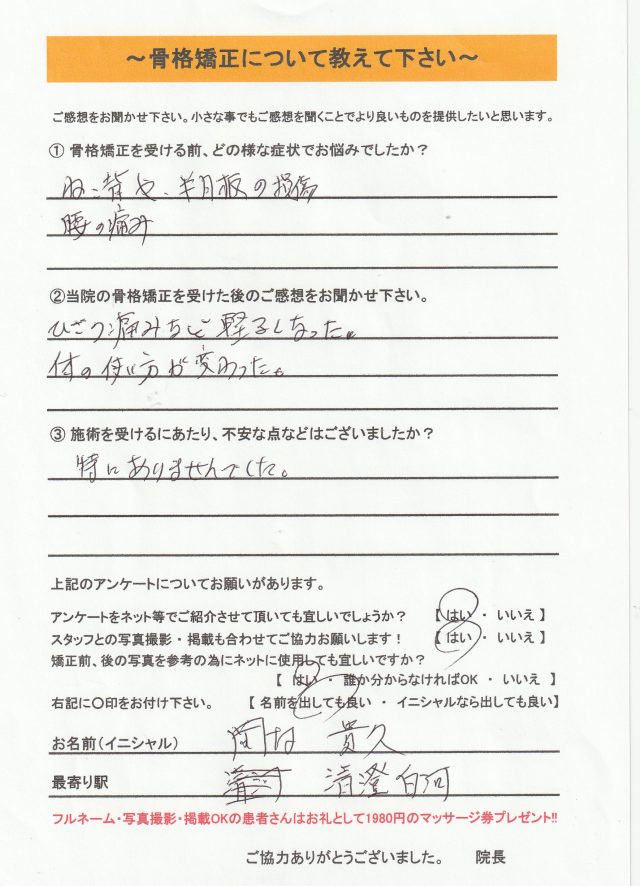 ～骨格矯正について教えて下さい～
ご感想をお聞かせ下さい。小さな事でもご感想を聞くことでより良いものを提供したいと思います。
① 骨格矯正を受ける前、どの様な症状でお悩みでしたか？
背や、半月板の損傷
腰の痛み
②当院の骨格矯正を受けた後のご感想をお聞かせ下さい。
ひざの痛みなど軽くなった。
体の使い方が変わった。
③ 施術を受けるにあたり、不安な点などはございましたか？
特にありませんでした。
上記のアンケートについてお願いがあります。
アンケートをネット等でご紹介させて頂いても宜しいでしょうか？ 【 はい ・ いいえ 】
スタッフとの写真撮影・掲載も合わせてご協力お願いします！ 【 はい ・ いいえ 】
矯正前、後の写真を参考の為にネットに使用しても宜しいですか？
【 はい ・ 誰か分からなければOK ・ いいえ 】
右記に〇印をお付け下さい。 【 名前を出しても良い ・ イニシャルなら出しても良い】
お名前（イニシャル） 貴久
最寄り駅 清澄白河
フルネーム・写真撮影・掲載OKの患者さんはお礼として1980円のマッサージ券プレゼント!!
ご協力ありがとうございました。 院長